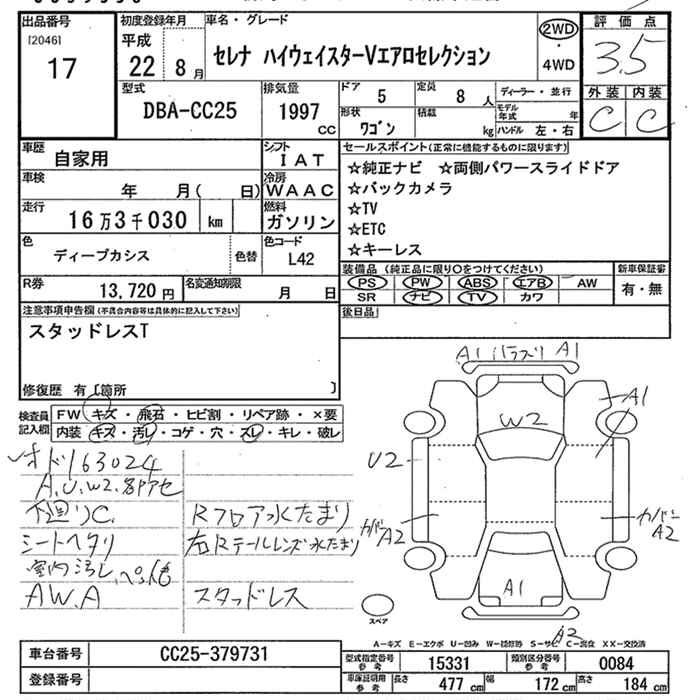 出品番号 初度登録年月 車名・グレード 評価点
[2046] 平成 2WD
17 22 8月 セレナ ハイウェイスターVエアロセレクション ・ 3.5
4WD
型式 排気量 ドア 5 定員 8 人 ディーラー・並行 外装 内装
DBA-CC25 1997 cc 形状 ワゴン 積載 kg モデル年式 年 C C
ハンドル 左・右
車歴 自家用 シフト IAT セールスポイント(正常に機能するものに限ります)
車検 年 月( 日) 冷房 WAAC ☆純正ナビ ☆両側パワースライドドア
☆バックカメラ
走行 16万3千030 km 燃料 ガソリン ☆TV
☆ETC
色 ディープカシス 色替 色コード L42 ☆キーレス
装備品 (純正品に限り○をつけてください) 新車保証書
R券 13,720円 名変通知期限 月 日 PS PW ABS エアB AW 有・無
SR ナビ TV カワ
注意事項申告欄(不具合内容等は具体的に記入して下さい) 後日品
スタッドレスT
修復歴 有〔箇所 〕
検査員記入欄 FW キズ・飛石・ヒビ割・リペア跡・×要
内装 キズ・汚レ・コゲ・穴・スレ・キレ・破レ
A1 A1
A1
W2
U2
オドリ63024
A.U.W2.
C. Rフロア水たまり
A2 カバー A2
シートヘタリ 右Rテールレンズ水たまり
室内汚レ、
A1
AW.A スタッドレス
スペア
A2
A-キズ E-エクボ U-凹み W-補修跡 S-サビ C-腐食 XX-交換済
車台番号 CC25-379731 型式指定番号 参考 15331 類別区分番号 参考 0084
登録番号 車庫証明用 参考 長さ 477 cm 幅 172 cm 高さ 184 cm